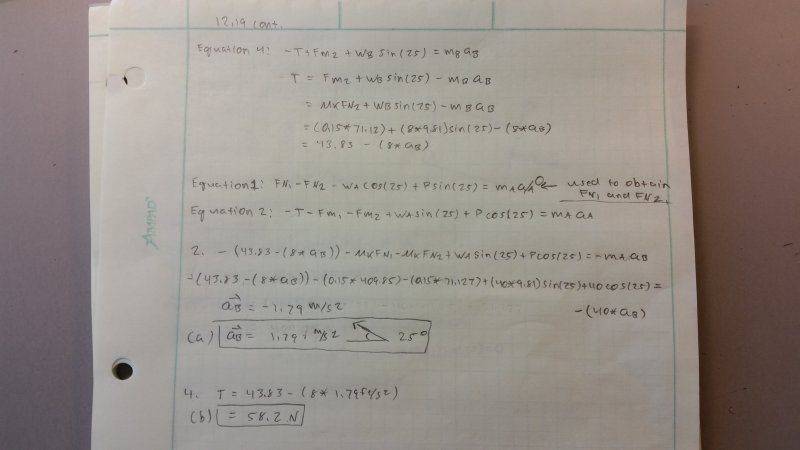 12.19 cont.
Equation 4: -T + Fm2 + WB sin(25) = mB aB
T = Fm2 + WB sin(25) - mB aB
= μK FN2 + WB sin(25) - mB aB
= (0.15*71.12) + (8*9.81) sin(25) - (8*aB)
= 43.83 - (8*aB)
Equation 1: FN1 - FN2 - WA cos(25) + P sin(25) = mA aA 0 ← used to obtain
FN1 and FN2.
Equation 2: -T - Fm1 - Fm2 + WA sin(25) + P cos(25) = mA aA
2. -(43.83 - (8*aB)) - μK FN1 - μK FN2 + WA sin(25) + P cos(25) = -mA aB
-(43.83 - (8*aB)) - (0.15*409.85) - (0.15*71.127) + (40*9.81) sin(25) + 40 cos(25) =
-(40*aB)
aB = -1.79 m/s2
(a) aB = 1.79 m/s2 25°
4. T = 43.83 - (8* 1.79 ft/s2)
(b) = 58.2 N
AMPAD